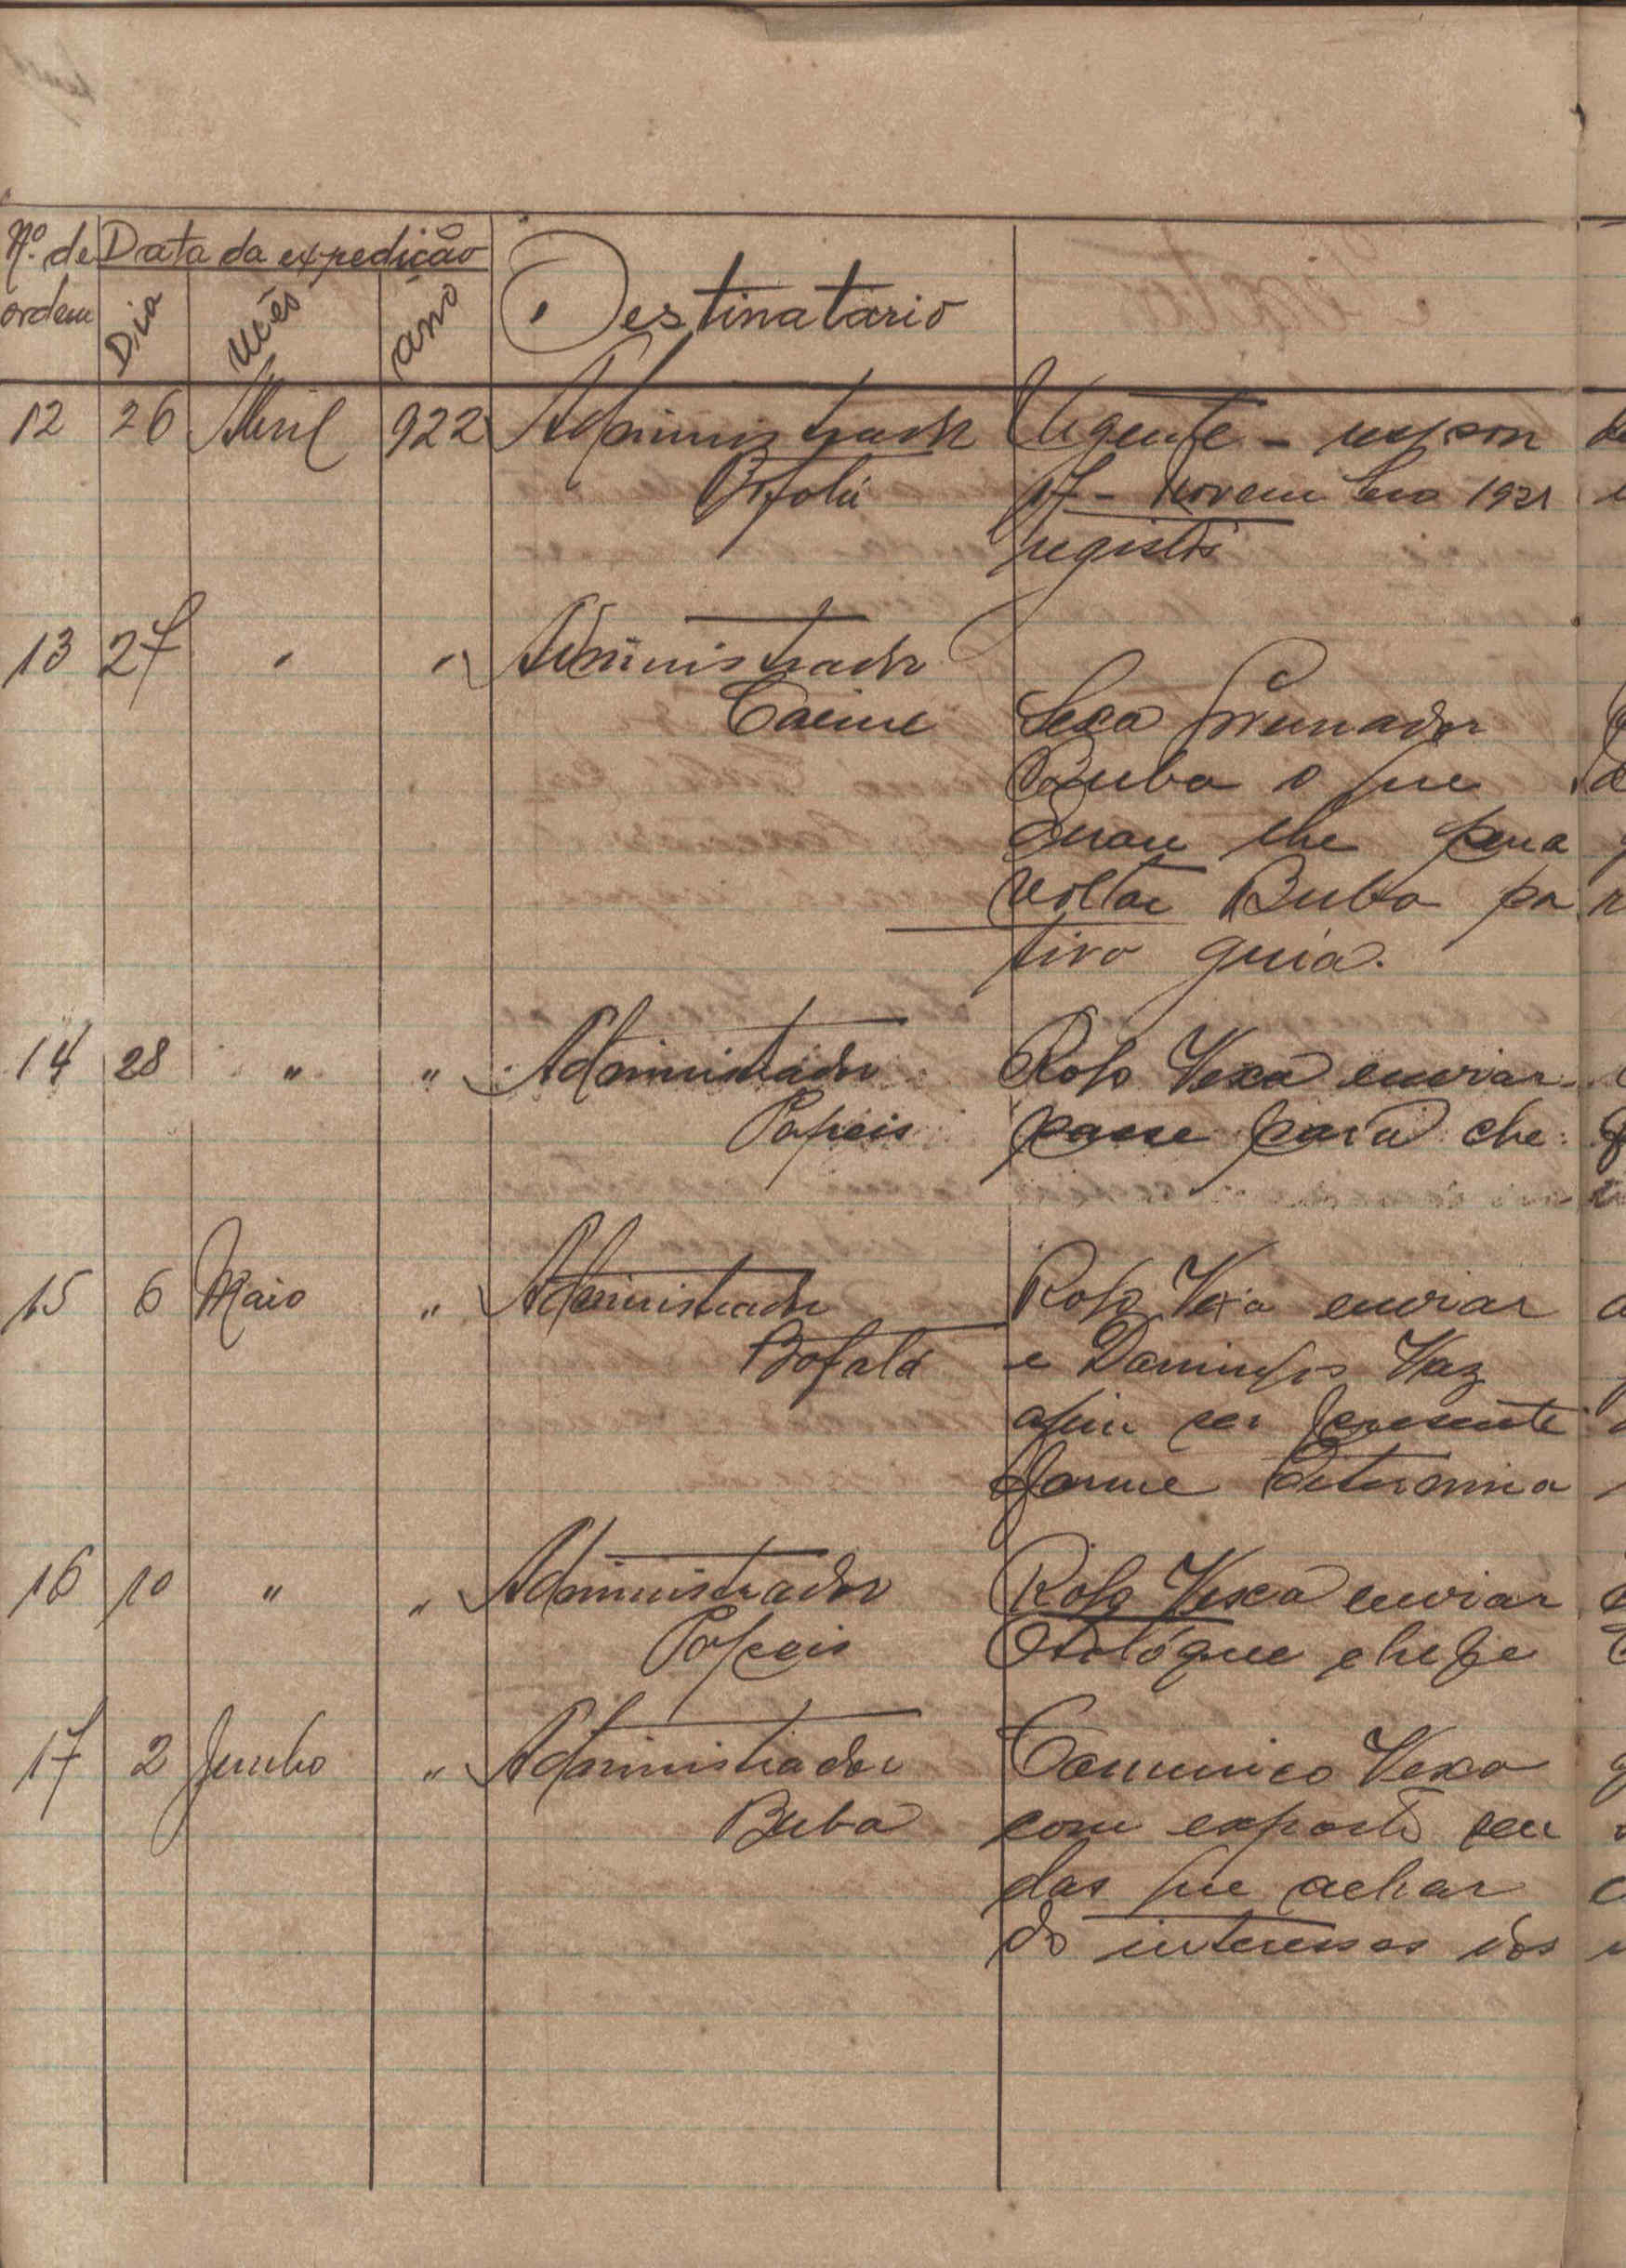 Nº. de Data da expedição
ordem Dia Mês Ano Destinatario
12 26 Abril 922 Administrador Urgente - respon
Bafatá 17 - Novembro 1921
registo
13 27 " " Administrador
Cacine Sexa Governador
Buba o que
para
voltar Buba pa
tivo guia.
14 28 " " Administrador Rogo Vexa enviar
Papeis passe para che
15 6 Maio " Administrador Rogo Vexa enviar
Bafatá e Domingos Vaz
afim ser presente
forme determina
16 10 " " Administrador Rogo Vexa enviar
Papeis chefe
17 2 Junho " Administrador Comunico Vexa
Buba com exposto seu
das que achar
do interesses dos